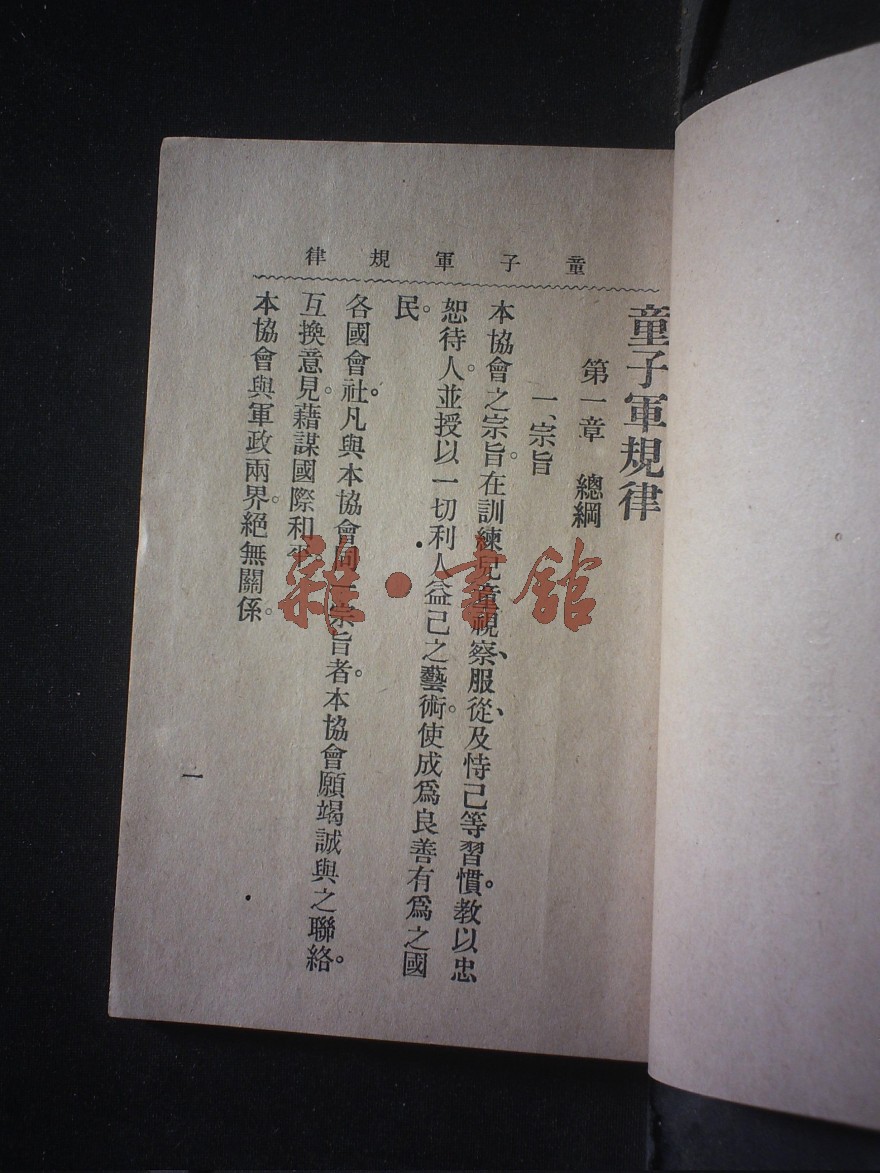 童子軍規律
童子軍規律
第一章 總綱
一、宗旨
本協會之宗旨。在訓練兒童視察、服從、及恃己等習慣。教以忠
恕待人。並授以一切利人益己之藝術。使成爲良善有爲之國
民。
各國會社。凡與本協會同一宗旨者。本協會願竭誠與之聯絡。
互換意見。藉謀國際和平。
本協會與軍政兩界。絕無關係。
一
雜·書館